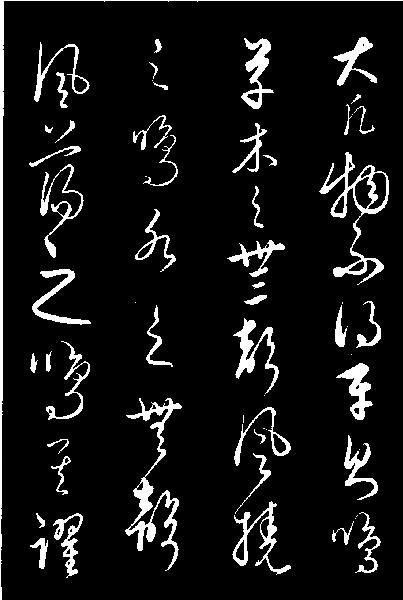 大凡物不得平則鳴
草木之無聲風撓
之鳴水之無聲
風蕩之鳴其躍